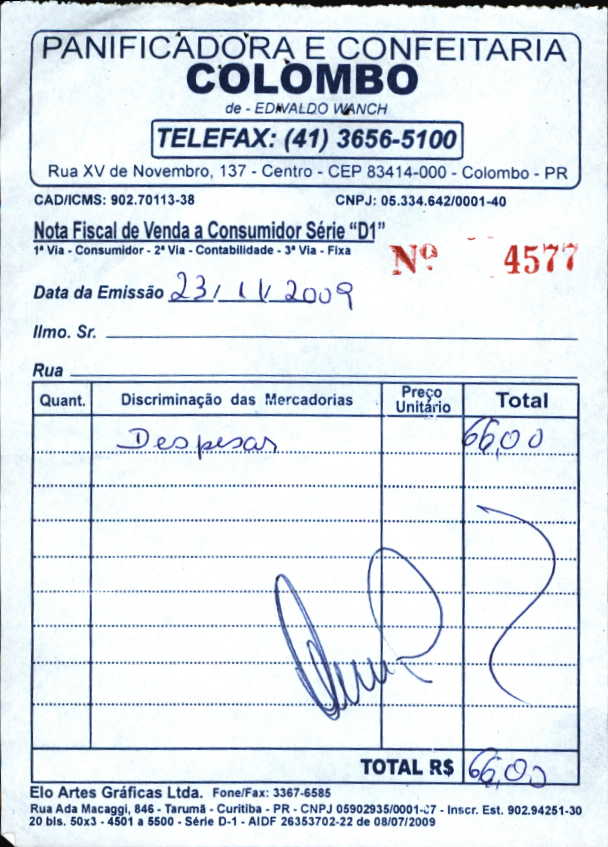 PANIFICADORA E CONFEITARIA
COLOMBO
de - EDIVALDO WANCH
TELEFAX: (41) 3656-5100
Rua XV de Novembro, 137 - Centro - CEP 83414-000 - Colombo - PR
CAD/ICMS: 902.70113-38 CNPJ: 05.334.642/0001-40
Nota Fiscal de Venda a Consumidor Série "D1"
1ª Via - Consumidor - 2ª Via - Contabilidade - 3ª Via - Fixa
Nº 4577
Data da Emissão 23/11/2009
Ilmo. Sr.
Rua
Quant. Discriminação das Mercadorias Preço Unitário Total
Despesas 66,00
TOTAL R$ 66,00
Elo Artes Gráficas Ltda. Fone/Fax: 3367-6585
Rua Ada Macaggi, 846 - Tarumã - Curitiba - PR - CNPJ 05902935/0001-27 - Inscr. Est. 902.94251-30
20 bls. 50x3 - 4501 a 5500 - Série D-1 - AIDF 26353702-22 de 08/07/2009